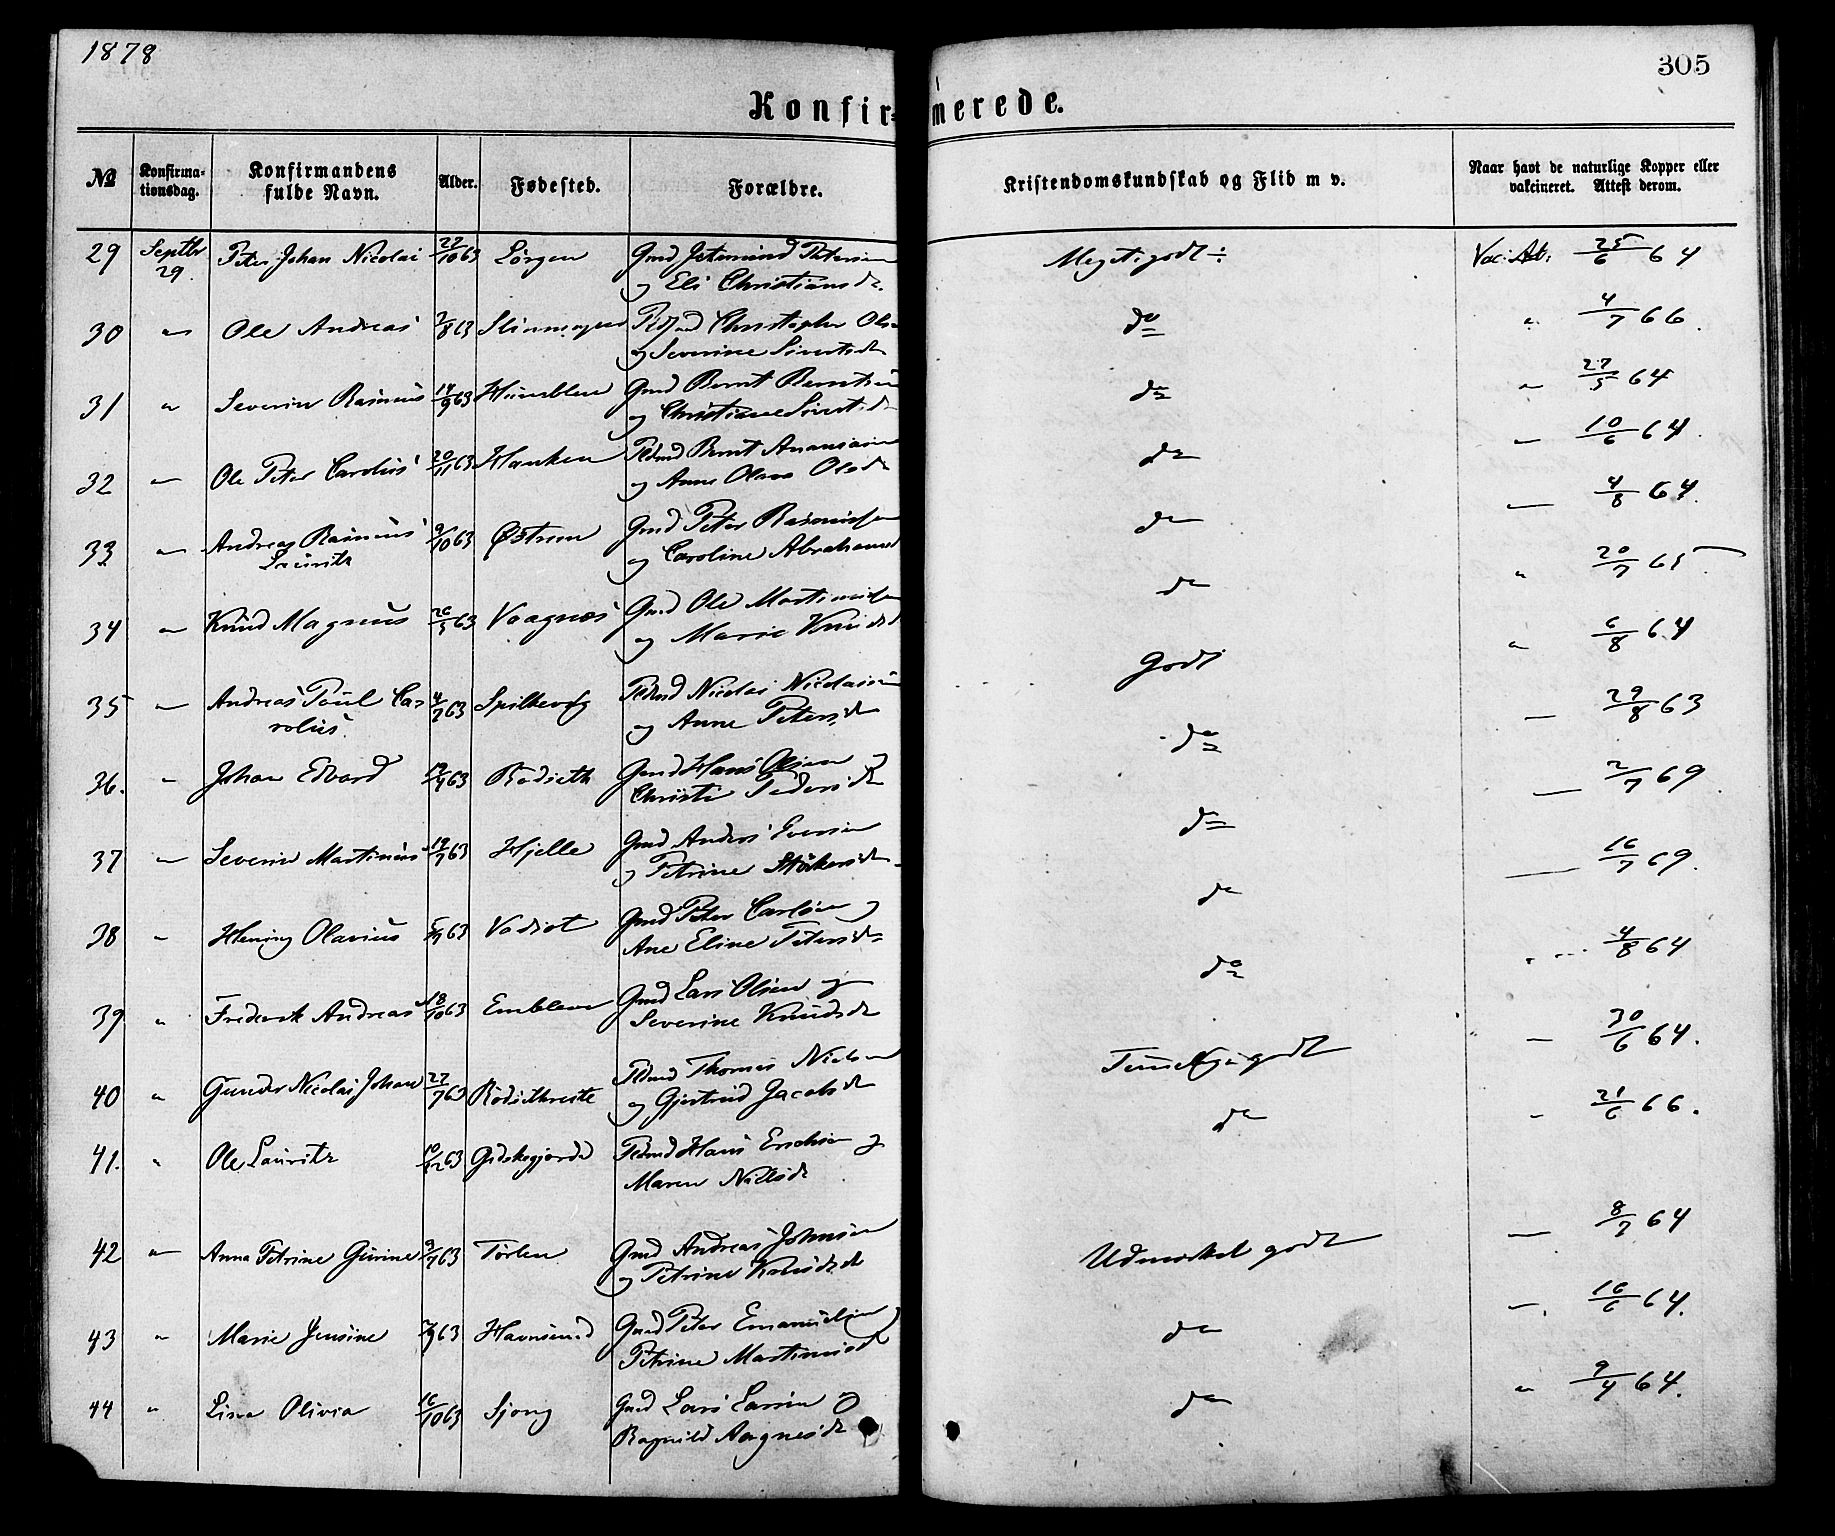 1878
305
Konfirmerede.
№ Konfirmationsdag. Konfirmandens fulde Navn. Alder. Fødested. Forældre. Kristendomskundskab og Flid m v. Naar havt de naturlige Kopper eller vakcineret. Attest derom.
29 Septbr 29. Peter Johan Nicolai 22/10 63 Gmd Petersen Meget godt ÷ Vac: Att: 25/6 64
og Eli Christiansdr.
30 " Ole Andreas 2/8 63 Christopher Olsen do 4/7 66
og Severine Sivertsdr
31 " Severin Rasmus 14/9 63 Humblen Gmd Bernt Berntsen do " 27/5 64
og Christiane Sivertsdr
32 " Ole Peter Carolus 20/11 63 Hanken Bernt Ananiasen do " 10/6 64
og Anne Olava Olsdr
33 " Andreas Rasmus Lauritz 9/10 63 Østrem Gmd Peter Rasmussen do 4/8 64
og Caroline Abrahamsd
34 " Knud Magnus 26/5 63 Vaagnes Gmd Ole Martinusen do " 20/7 65
og Marie Knudsd
35 " Andreas Poul Carolus 4/7 63 Spilkevig Nicolai Nicolaisen Godt " 6/8 64
og Anne Petersdr
36. " Johan Edvard 63 Rødseth Gmd Hans Olsen og do 29/8 63
Christi Pedersdr
37 " Severin Martinus 19/7 63 Hjelle Gmd Anders Iversen do 2/7 69
og Petrine
38 " Hening Olarius 63 Gmd Peter Carlsen og do 16/7 69
Ane Eline Petersdr
39 " Frederik Andreas 18/10 63 Emblem Gmd Lars Olsen og do 4/8 64
Severine Knudsdr
40 " Gunder Nicolai Johan 27/7 63 Rødsethreite Thomas Nielsen Temmelig godt 30/6 64.
og Gjertrud Jacobsdr
41. " Ole Lauritz 63 Gidskegjerde Hans Erichsen og do 21/6 66.
Maren Nielsdr
42 " Anna Petrine Gurine 9/7 63 Tørlen Gmd Andreas Johnsen Udmerket godt 8/7 64
og Petrine Knudsdr
43 " Marie Jensine 7/9 63 Havnsund Gmd Peter Emanuelsen og do 16/6 64.
Petrine Martinusdr
44 " Lina Olivia 16/10 63 Sjong Gmd Lars Larsen og do " 9/4 64.
Ragnild Aagnesdr